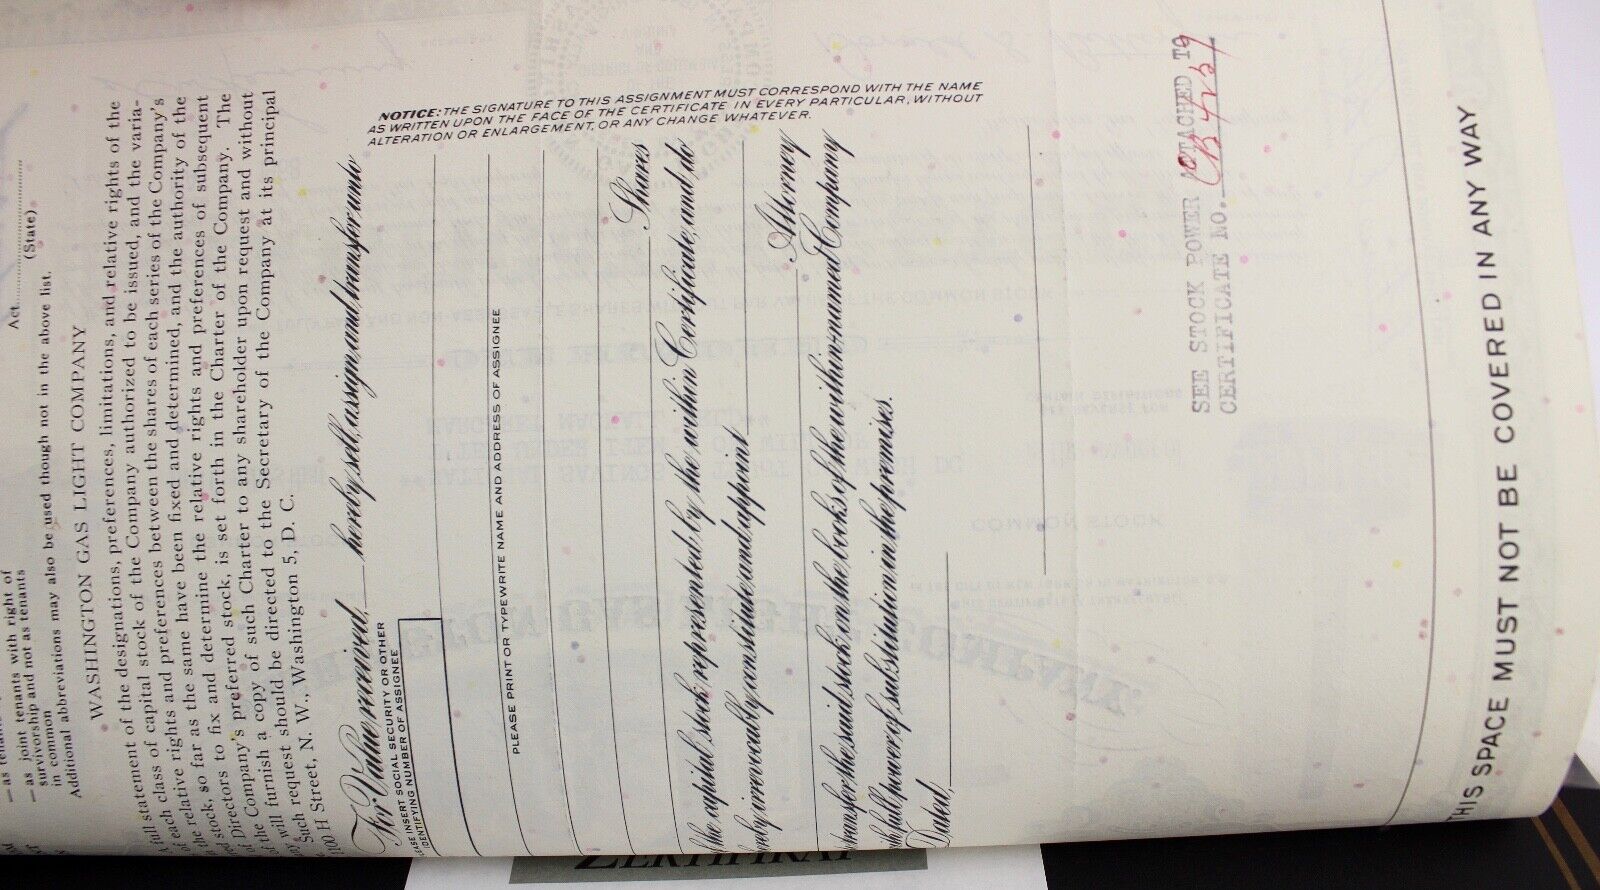 — as joint tenants with right of
survivorship and not as tenants
in common
Act
(State)
Additional abbreviations may also be used though not in the above list.
WASHINGTON GAS LIGHT COMPANY
full statement of the designations, preferences, limitations, and relative rights of the
each class of capital stock of the Company authorized to be issued, and the varia-
of each rights and preferences between the shares of each series of the Company's
relative rights and preferences of subsequent
stock, so far as the same have been fixed and determined, and the authority of the
Directors to fix and determine the relative rights and preferences of subsequent
of the Company's preferred stock, is set forth in the Charter of the Company. The
will furnish a copy of such Charter to any shareholder upon request and without
Such request should be directed to the Secretary of the Company at its principal
1100 H Street, N. W., Washington 5, D. C.
NOTICE: THE SIGNATURE TO THIS ASSIGNMENT MUST CORRESPOND WITH THE NAME
AS WRITTEN UPON THE FACE OF THE CERTIFICATE IN EVERY PARTICULAR, WITHOUT
ALTERATION OR ENLARGEMENT, OR ANY CHANGE WHATEVER.
For Value received, hereby sell, assign and transfer unto
INSERT SOCIAL SECURITY OR OTHER
IDENTIFYING NUMBER OF ASSIGNEE
PLEASE PRINT OR TYPEWRITE NAME AND ADDRESS OF ASSIGNEE
Shares
the capital stock represented by the within Certificate, and do
hereby irrevocably constitute and appoint
Attorney
transfer the said stock on the books of the within-named Company
full power of substitution in the premises.
Dated,
SEE STOCK POWER ATTACHED TO
CERTIFICATE NO.
THIS SPACE MUST NOT BE COVERED IN ANY WAY
ZERTIFIKAT